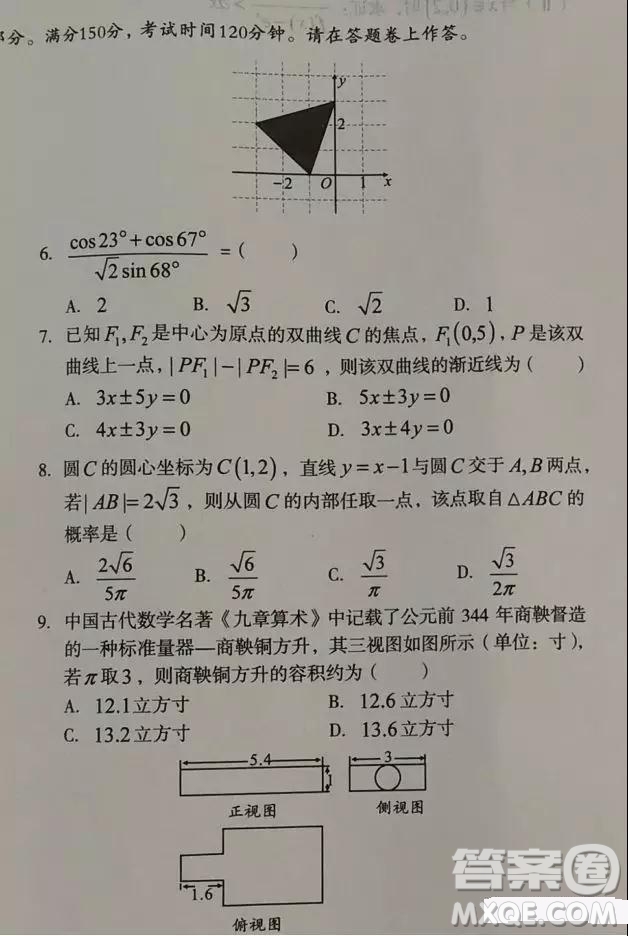 部分。满分150分，考试时间120分钟。请在答题卷上作答。
y
2
-2 O 1 x
6. \frac{cos23°+cos67°}{\sqrt{2}sin68°} =（ ）
A. 2 B. √3 C. √2 D. 1
7. 已知F₁,F₂是中心为原点的双曲线C的焦点，F₁(0,5)，P是该双
曲线上一点，|PF₁|−|PF₂|=6，则该双曲线的渐近线为（ ）
A. 3x±5y=0 B. 5x±3y=0
C. 4x±3y=0 D. 3x±4y=0
8. 圆C的圆心坐标为C(1,2)，直线y=x−1与圆C交于A,B两点，
若|AB|=2√3，则从圆C的内部任取一点，该点取自△ABC的
概率是（ ）
A. \frac{2√6}{5π} B. \frac{√6}{5π} C. \frac{√3}{π} D. \frac{√3}{2π}
9. 中国古代数学名著《九章算术》中记载了公元前344年商鞅督造
的一种标准量器—商鞅铜方升，其三视图如图所示（单位：寸），
若π取3，则商鞅铜方升的容积约为（ ）
A. 12.1立方寸 B. 12.6立方寸
C. 13.2立方寸 D. 13.6立方寸
5.4 3
1
正视图 侧视图
1.6
俯视图
答案圈
MXQE.COM